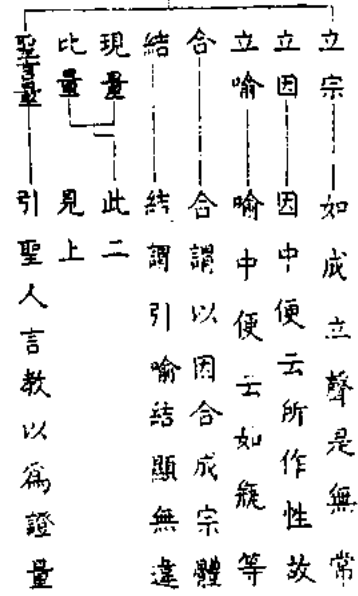 立宗 如成立聲是無常
立因 因中便云所作性故
立喻 喻中便云如瓶等
合 合謂以因合成宗體
結 結謂引喻結顯無違
現量 此二
比量 見上
聖言量 引聖人言教以爲證量